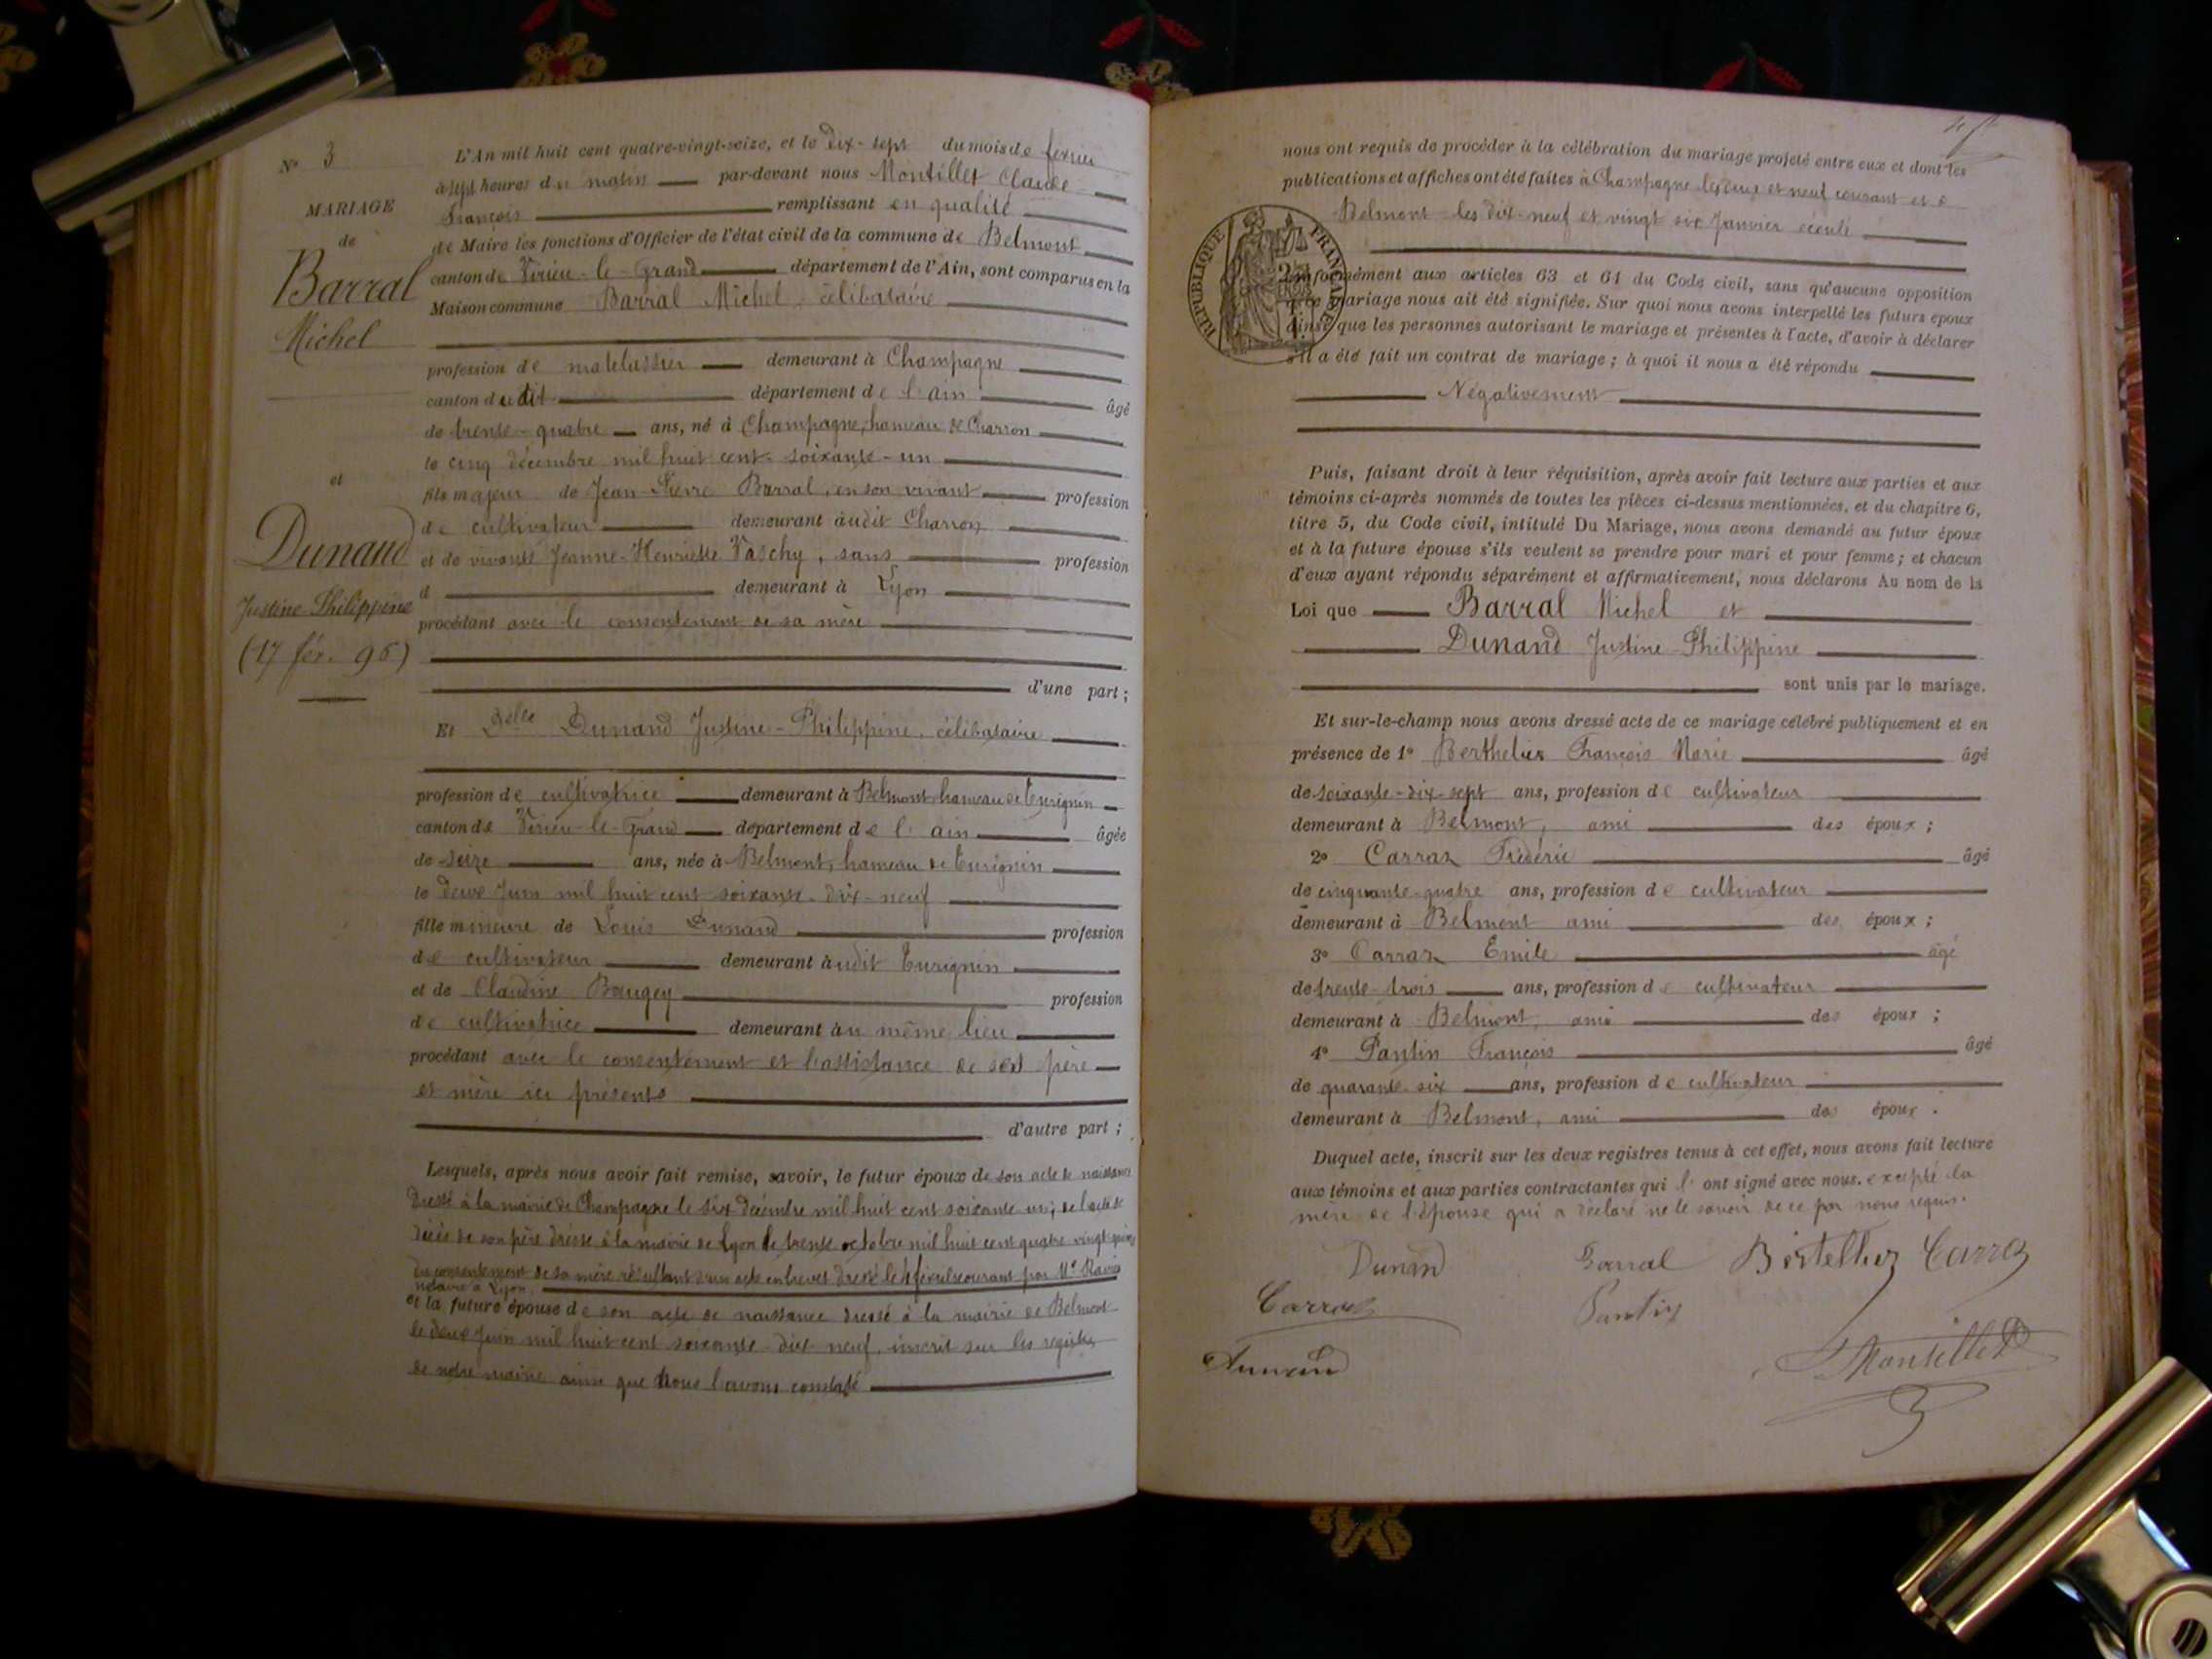 N° 3
MARIAGE
de
Barral
Michel
et
Dunand
Justine Philippine
(17 fév. 96)
L'An mil huit cent quatre-vingt-seize, et le dix-sept du mois de février
à sept heures du matin par-devant nous Montillet Claude
François remplissant en qualité
de Maire les fonctions d'Officier de l'état civil de la commune de Belmont
canton de Virieu-le-Grand département de l'Ain, sont comparus en la
Maison commune Barral Michel, célibataire
profession de matelassier demeurant à Champagne
canton dudit département de l'ain âgé
de trente-quatre ans, né à Champagne, hameau de Charron
le cinq décembre mil huit cent soixante-un
fils majeur de Jean-Pierre Barral, en son vivant profession
de cultivateur demeurant audit Charron
et de vivante Jeanne-Henriette Vaschy, sans profession
d demeurant à Lyon
procédant avec le consentement de sa mère
d'une part;
Et Delle Dunand Justine-Philippine, célibataire
profession de cultivatrice demeurant à Belmont, hameau de Turignin
canton de Virieu-le-Grand département de l'ain âgée
de seize ans, née à Belmont, hameau de Turignin
le deux Juin mil huit cent soixante-dix-neuf
fille mineure de Louis Dunand profession
de cultivateur demeurant audit Turignin
et de Claudine Baugey profession
de cultivatrice demeurant au même lieu
procédant avec le consentement et l'assistance de ses père
et mère ici présents
d'autre part;
Lesquels, après nous avoir fait remise, savoir, le futur époux de son acte de naissance
dressé à la mairie de Champagne le six décembre mil huit cent soixante un; de l'acte de
décès de son père dressé à la mairie de Lyon le trente octobre mil huit cent quatre vingt
du consentement de sa mère résultant d'un acte en brevet dressé le février courant par Me
notaire à Lyon,
et la future épouse de son acte de naissance dressé à la mairie de Belmont
le deux Juin mil huit cent soixante-dix-neuf, inscrit sur les registres
de notre mairie ainsi que nous l'avons constaté
nous ont requis de procéder à la célébration du mariage projeté entre eux et dont les
publications et affiches ont été faites à Champagne les deux et neuf courant et à
Belmont les dix-neuf et vingt six Janvier écoulé
RÉPUBLIQUE FRANÇAISE
conformément aux articles 63 et 64 du Code civil, sans qu'aucune opposition
à ce mariage nous ait été signifiée. Sur quoi nous avons interpellé les futurs époux
ainsi que les personnes autorisant le mariage et présentes à l'acte, d'avoir à déclarer
s'il a été fait un contrat de mariage; à quoi il nous a été répondu
Négativement
Puis, faisant droit à leur réquisition, après avoir fait lecture aux parties et aux
témoins ci-après nommés de toutes les pièces ci-dessus mentionnées, et du chapitre 6,
titre 5, du Code civil, intitulé Du Mariage, nous avons demandé au futur époux
et à la future épouse s'ils veulent se prendre pour mari et pour femme; et chacun
d'eux ayant répondu séparément et affirmativement, nous déclarons Au nom de la
Loi que Barral Michel et
Dunand Justine-Philippine
sont unis par le mariage.
Et sur-le-champ nous avons dressé acte de ce mariage célébré publiquement et en
présence de 1° Berthelier François Marie âgé
de soixante-dix-sept ans, profession de cultivateur
demeurant à Belmont, ami des époux;
2° Carraz Frédéric âgé
de cinquante-quatre ans, profession de cultivateur
demeurant à Belmont ami des époux;
3° Carraz Emile âgé
de trente-trois ans, profession de cultivateur
demeurant à Belmont, ami des époux;
4° Pantin François âgé
de quarante-six ans, profession de cultivateur
demeurant à Belmont, ami des époux.
Duquel acte, inscrit sur les deux registres tenus à cet effet, nous avons fait lecture
aux témoins et aux parties contractantes qui l'ont signé avec nous. excepté la
mère de l'épouse qui a déclaré ne le savoir de ce par nous requis.
Dunand Barral Bertellier Carraz
Carraz Pantin
Dunand Montillet